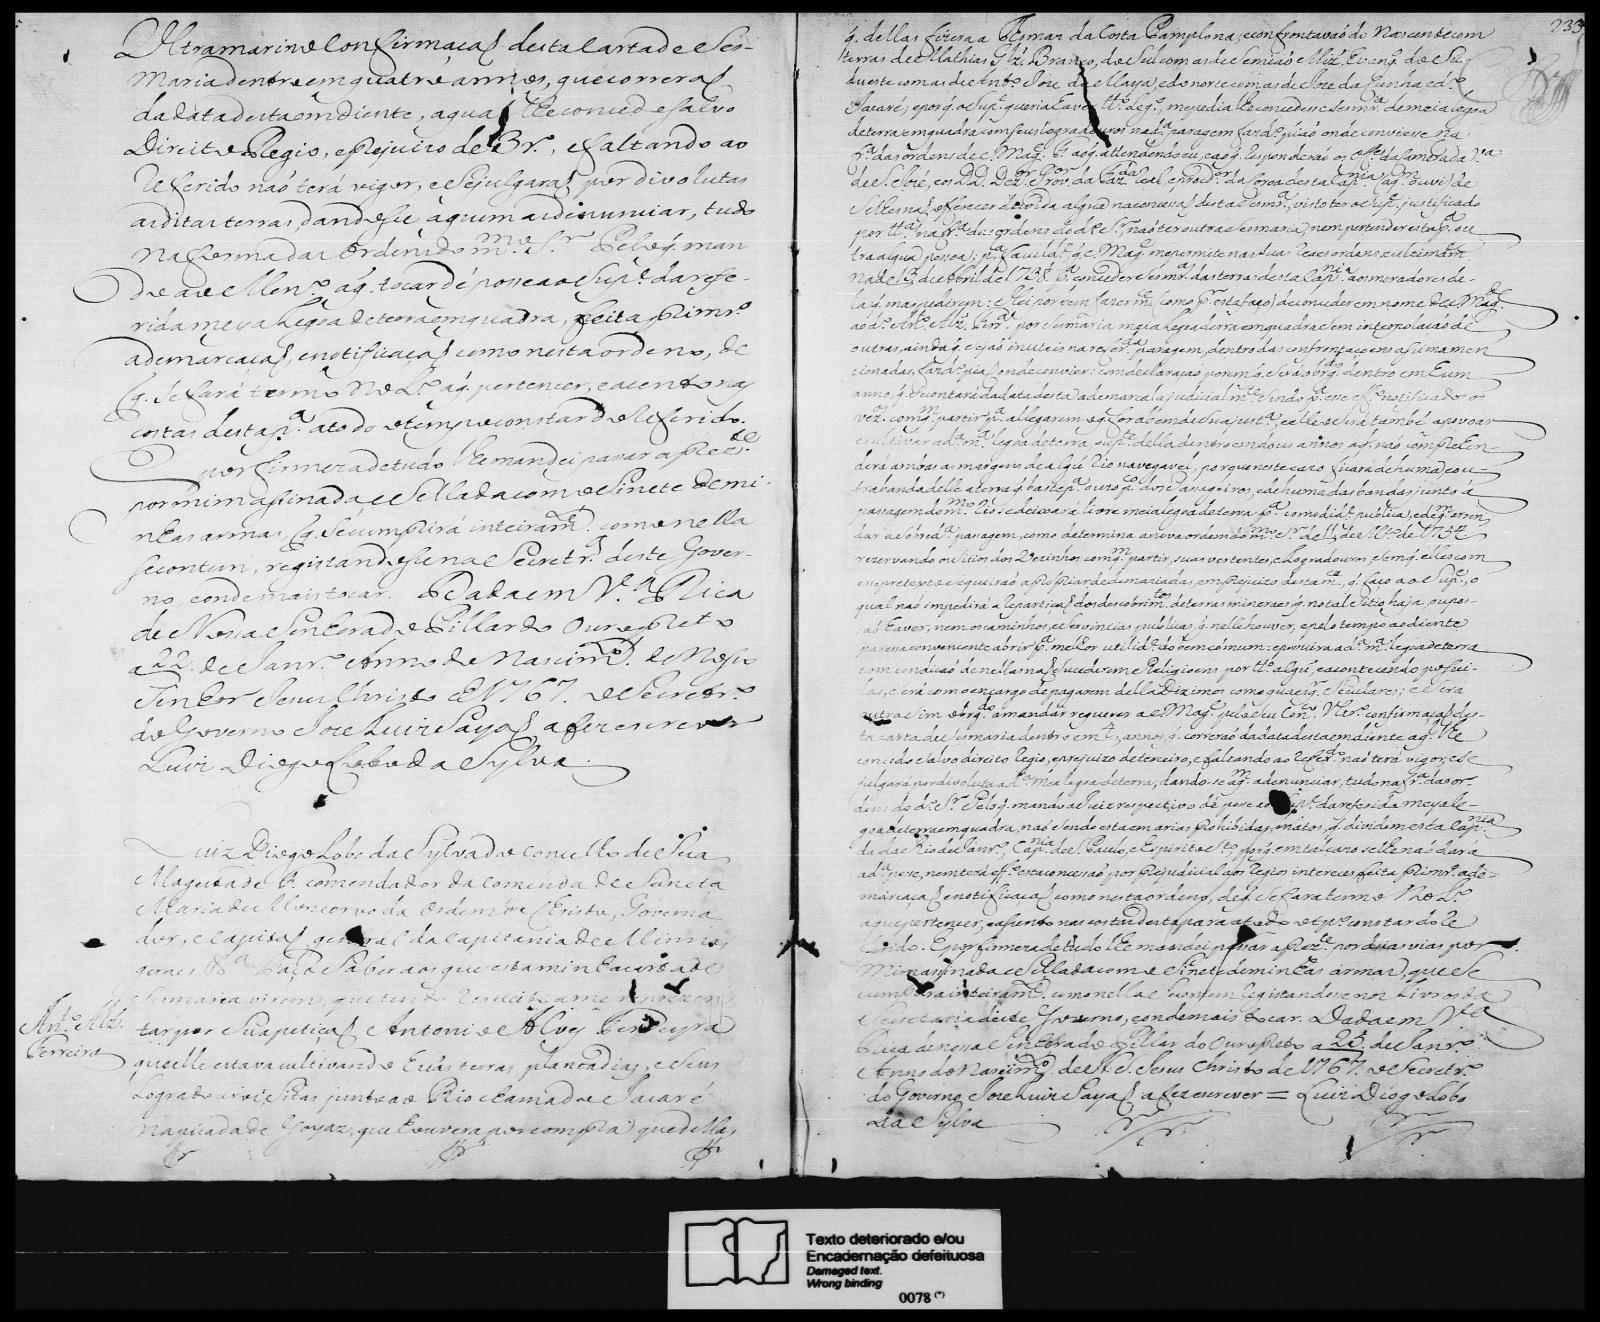 Ultramarino confirmaçaõ desta carta de Ses-
maria dentro em quatro annos, que correraõ
da data desta em diente, a qual lhe concedo salvo
Direito Regio, e prejuizo de 3.º, e faltando ao
referido naõ terá vigor, e se julgaraõ por divolutas
as ditas terras, dandose a quem as denunciar, tudo
na forma das ordens do mesmo Sr. Pelo q. man
do ao Men.º a q. tocar dé posse ao Sup.e da refe-
rida meya Legoa de terra em quadra, feita prim.º
a demarcaçaõ, e notificaçaõ como nesta ordeno, de
q. se fará termo no L.º a q. pertencer, e acento nas
costas desta p.ª a todo o tempo constar do referido.
por firmeza de tudo lhe mandei passar a prez.te
por mim asinada e Sellada com o Sinete de mi-
nhas armas, q. se cumprirá inteiram.te como nella
se contem, registandose na Secretr.ª deste Gover-
no, e onde mais tocar. Dada em V.ª Rica
de Nossa Senhora do Pillar do Ouro preto
a 22 de Janr.º Anno do Nascim.to de Nosso
Senhor Jesus Christo de 1767. o Secretr.º
do Governo Joze Luiz Sayaõ a fez escrever
Luiz Diogo Lobo da Sylva
Luiz Diogo Lobo da Sylva do Concelho de Sua
Magestade F. comendador da comenda de Sancta
Maria de Moncorvo da Ordem de Christo, Governa
dor, e Capitaõ general da Capitania de Minnas
geraes &.ª Faço Saber aos que esta minha carta de
Sesmaria virem, que tendo respeito a me reprezen
tar por sua petiçaõ Antonio Alvez Ferreyra
Ant.º Alz.
Ferreira
que elle estava cultivando huãs terras plantadias, e seus
Logradouros Sitas junto ao Rio chamado Jacaré
na picada de Goyaz, que houvera por compra que dellas
233
q. dellas fizera a Ignas da Costa Pamplona, e confrontavaõ do Nascente com
terras de Mathias Glz. Branco, do Sul com as de Semiaõ Miz.
dueste com as de Ant.º Joze de Maya, e do norte com as de Joze da Cunha
Jacaré; e porq. o Sup.e queria haver me pedia lhe concedesse Sesmr.ª de meia legoa
de terra em quadra com seus logradouros na d.ª paragem fazd.º piaõ onde conviesse na
fr.ª das ordens de S. Mag. F. ao q. attendendo eu, e ao q. responderaõ os Off.es da Camera da V.ª
de S. Jozé, e os DD. Dez.or Prov.or da Faz.da Real, e Proc.or da Coroa desta Cap.nia (a q.m ouvi) de
Selhes naõ offerecer duvida algua na concessaõ desta Sesmr.ª, visto ter o Sup.e justificado
por tt.ª na fr.ª das ordens do d.º Sr. naõ ter outra Sesmaria, nem pertender esta p.ª ou
tra algua pessoa; p.la faculd.e q. S. Mag. me permite nas suas reaes ordens, e ultimam.te
na de 13 de Abril de 1738 p.ª conceder Sesmr.as das terras desta Cap.nia aos moradores de-
la q. mas pedirem: Hei por bem fazer m.ce (como p.r esta faço) de conceder em nome de S. Mag.
ao d.º Ant.º Alz. Ferr.ª por Sesmaria meia legoa de terra em quadra sem interpolaçaõ de
outras, ainda q. sejaõ inuteis na refer.da paragem, dentro das confrontaçoens asima men
cionadas, fazd.º piaõ onde convier: com declaraçaõ porem q. será obrig.do dentro em hum
anno, q. se contará da data desta a demarcala judicialm.te sendo p.ª esse eff.º notificados os
vez.os com q.m partir p.ª allegarem o q. for a bem de sua just.ª, e elle o será tambe a povoar
e cultivar a d.ª m.ª legoa de terra, ou p.te della dentro em dous annos, a q. naõ comprehen
derá ambas as margens de algũ Rio navegavel, porque neste cazo ficará de huma, e ou
tra banda delle a terra q. baste p.ª o uzo p.co dos passageiros, e de huma das bandas junto á
passagem do m.mo Rio se deixará livre meia legoa de terra p.ª comodid.e publica, e de q.m arren
dar a sobred.ª passagem, como determina a nova ordem do m.mo Sr. de 11 de M.co de 1754
rezervando os Sitios dos Vezinhos com q.m partir, suas vertentes, e Logradouros, sem q. elles com
esse pretexto se queiraõ apropriar de demaziadas, em prejuizo desta m.ce q. faço ao Sup.e, o
qual naõ impedirá a repartiçaõ dos descobrim.tos de terras mineraes q. no tal Sitio haja, ou pos-
saõ haver, nem os caminhos, e Serventias publicas q. nelle houver, e pelo tempo ao diente
pareça conveniente abrir p.ª melhor utilid.e do bem comum: e possuirá a d.ª m.ª legoa de terra
com condiçaõ de nella naõ Sucederem Religioens por tt.º algũ, e acontecendo possui-
las, será com o encargo de pagarem della Dizimos como quaesq.r Seculares; e será
outro sim obrig.do a mandar requerer a S. Mag. pelo seu Con.º Ultr.º confirmaçaõ des-
ta carta de Sesmaria dentro em 4 annos, q. correraõ da data desta em diente, a q. lhe
concedo salvo direito Regio, e prejuizo de terceiro, e faltando ao refer.do naõ terá vigor, e se
julgará por divoluta a d.ª mea legoa de terra, dando-se a q.m a denunciar, tudo na fr.ª das or
dens do d.º Sr. Pelo q. mando ao Juiz respectivo dé posse ao Sup.e da referida meya le-
goa de terra em quadra, naõ sendo esta em arias prohibidas, matos, q. dividem esta Cap.nia
da do Rio de Janr.º, Cap.nia de S. Paulo, e Espirito S.to, porq. em tal cazo se lhe naõ dará
a d.ª posse, nem terá eff.º esta concessaõ por prejudicial aos Regios interesses, feita primr.º a de-
marcaçaõ, e notificaçaõ como nesta ordeno, de q. se fará termo no L.º
a que pertencer, e asento nas costas desta para a todo o tp.º constar do re
ferido. E por firmeza de tudo lhe mandei passar a prez.te por duas vias por
mim asinada e Sellada com o Sinete de minhas armas, que se
cumprirá inteiram.te como nella se contem registandose nos Livros da
Secretaria deste Governo, e onde mais tocar. Dada em V.ª
Rica de nossa Senhora do Pillar do Ouro preto a 23 de Janr.º
Anno do Nascim.to de N. S. Jesus Christo de 1767. o Secretr.º
do Governo Joze Luiz Sayaõ a fez escrever = Luiz Diogo Lobo
da Sylva
Texto deteriorado e/ou
Encadernação defeituosa
Damaged text.
Wrong binding
0078 (*)